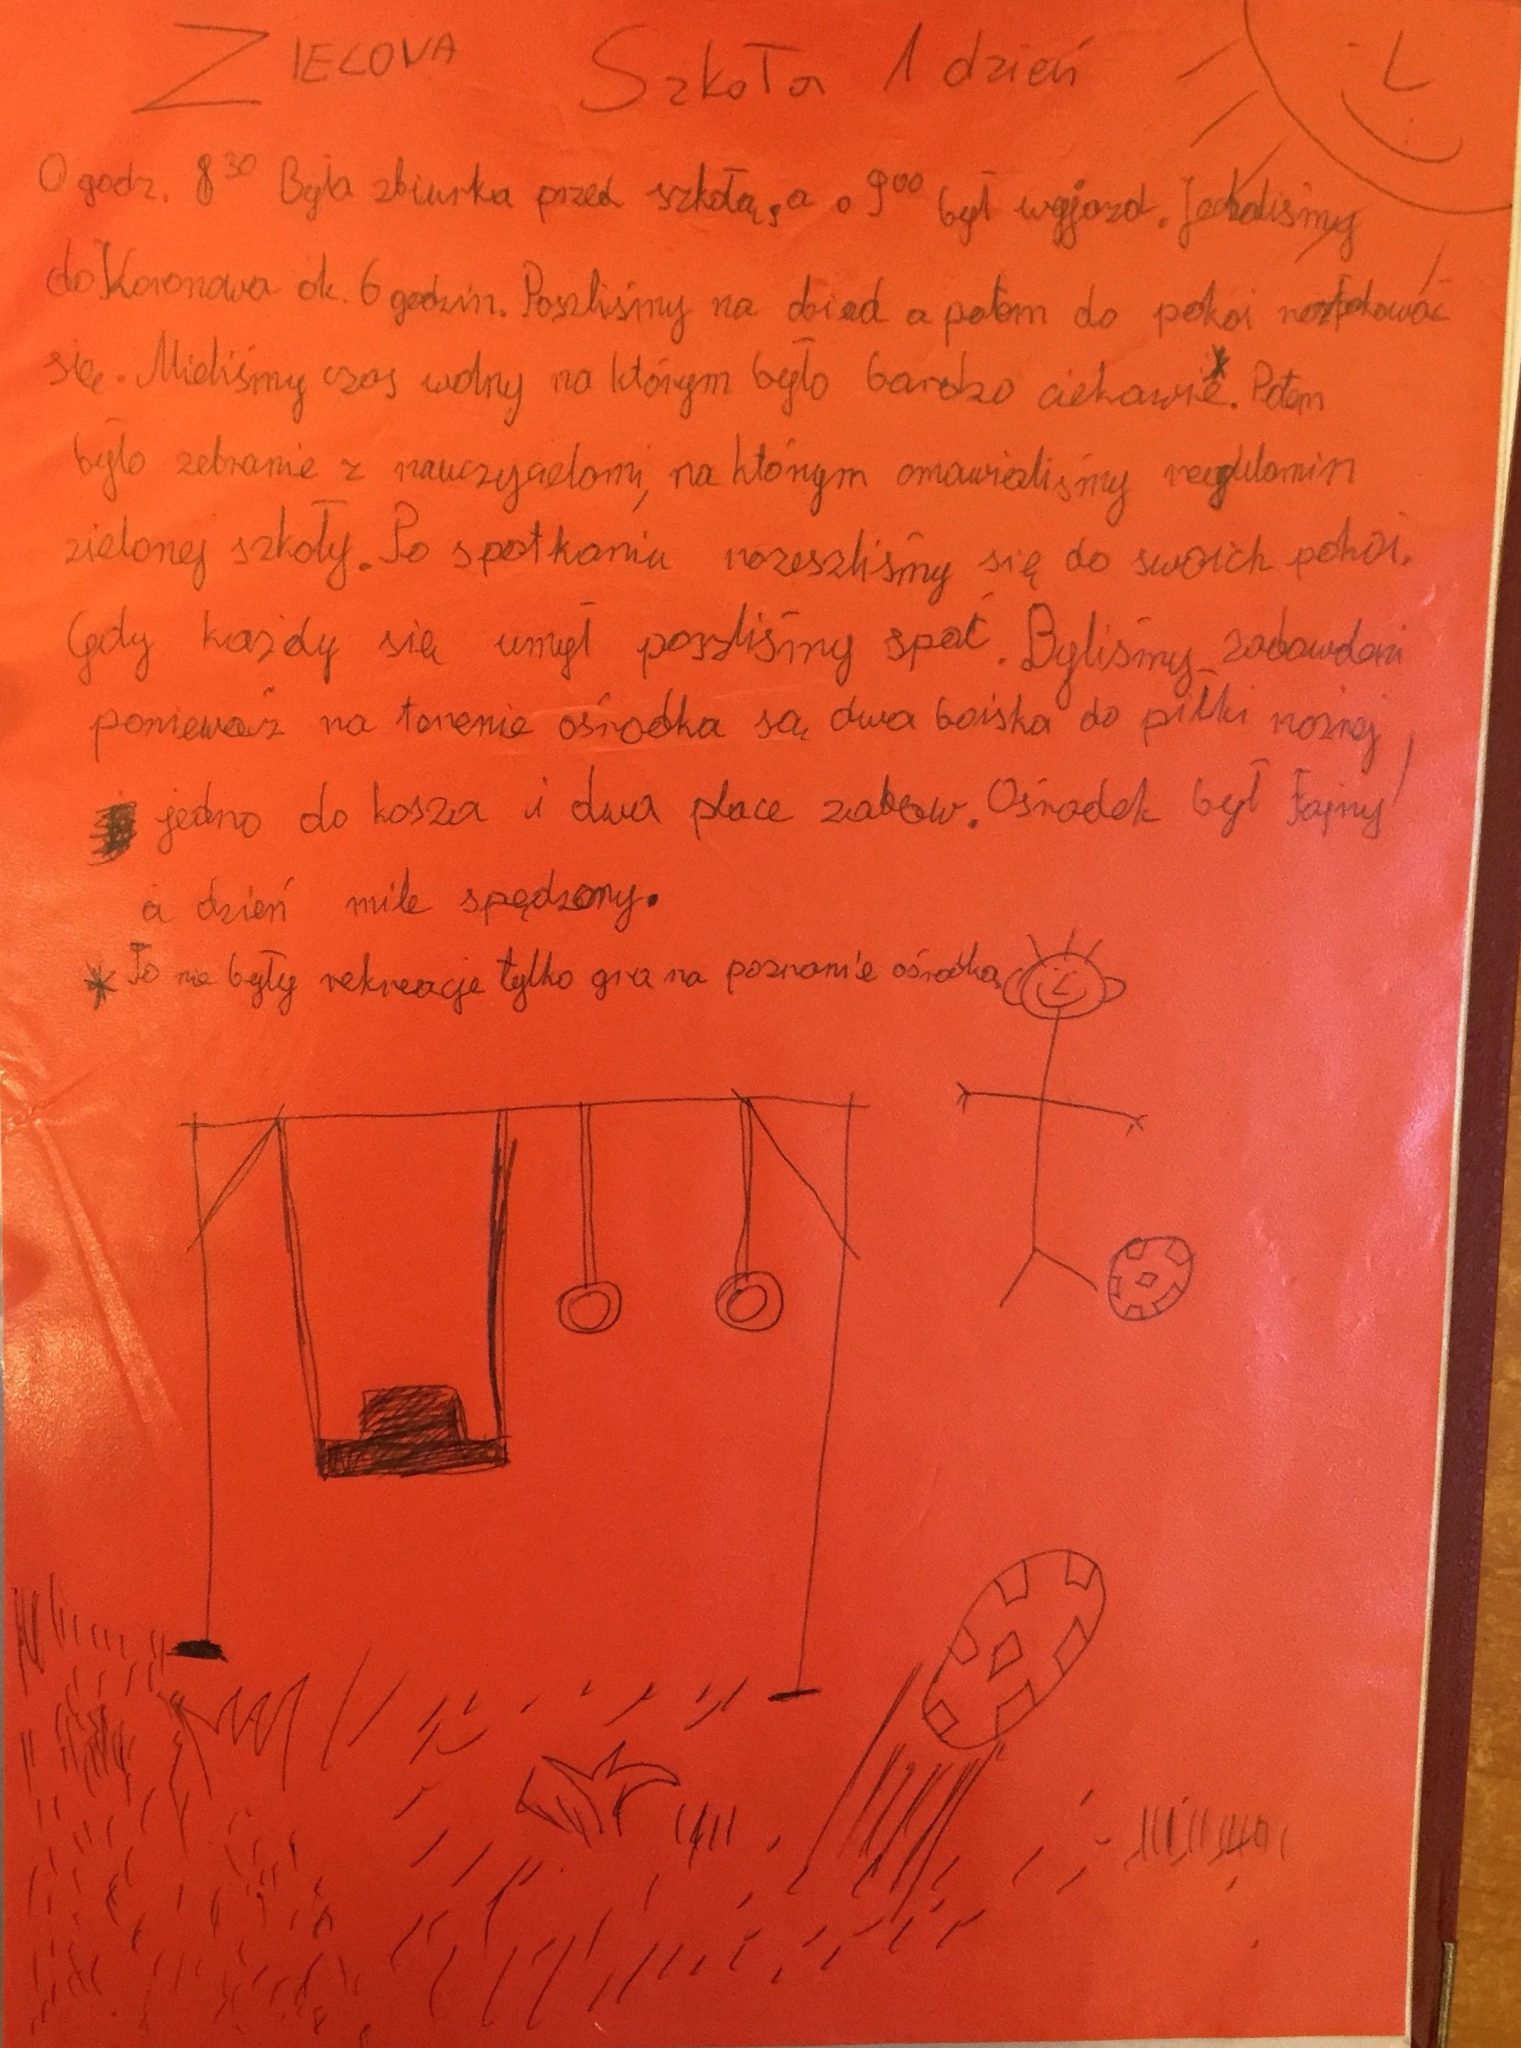 ZIELOVA Szkoła 1 dzień
O godz. 8³⁰ Była zbiurka przed szkołą, a o 9⁰⁰ był wyjazd. Jechaliśmy
do Koronowa ok. 6 godzin. Poszliśmy na obiad a potem do pokoi rozpakować
się. Mieliśmy czas wolny na którym było bardzo ciekawie*. Potem
było zebranie z nauczycielami, na którym omawialiśmy regulamin
zielonej szkoły. Po spotkaniu rozeszliśmy się do swoich pokoi.
Gdy każdy się umył poszliśmy spać. Byliśmy zadowoleni
ponieważ na terenie ośrodka są dwa boiska do piłki nożnej,
jedno do kosza i dwa place zabaw. Ośrodek był fajny
a dzień mile spędzony.
* To nie były rekreacje tylko gra na poznanie ośrodka